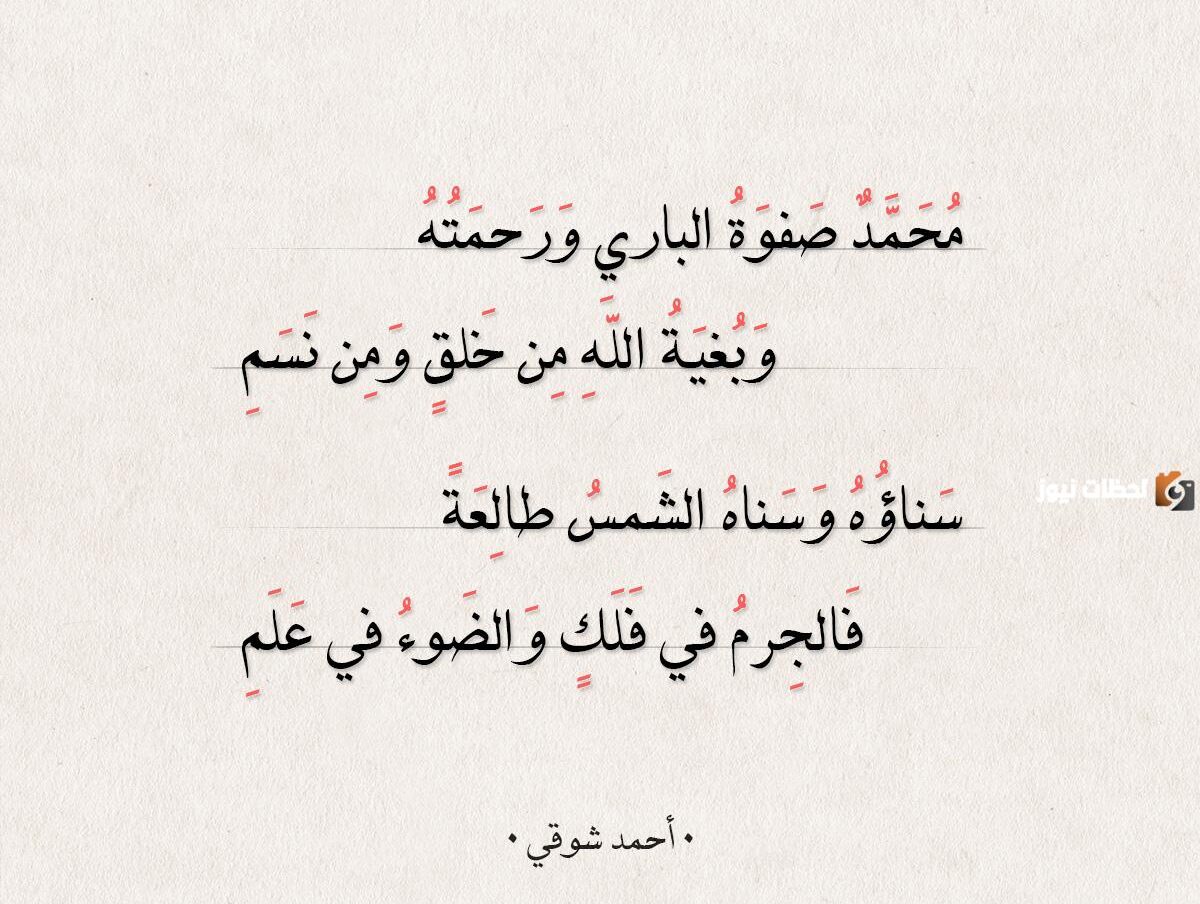 مُحَمَّدٌ صَفوَةُ الباري وَرَحمَتُهُ
وَبُغيَةُ اللَّهِ مِن خَلقٍ وَمِن نَسَمِ
سَناؤُهُ وَسَناهُ الشَمسُ طالِعَةً
فَالجِرمُ في فَلَكٍ وَالضَوءُ في عَلَمِ
• أحمد شوقي •
لحظات نيوز